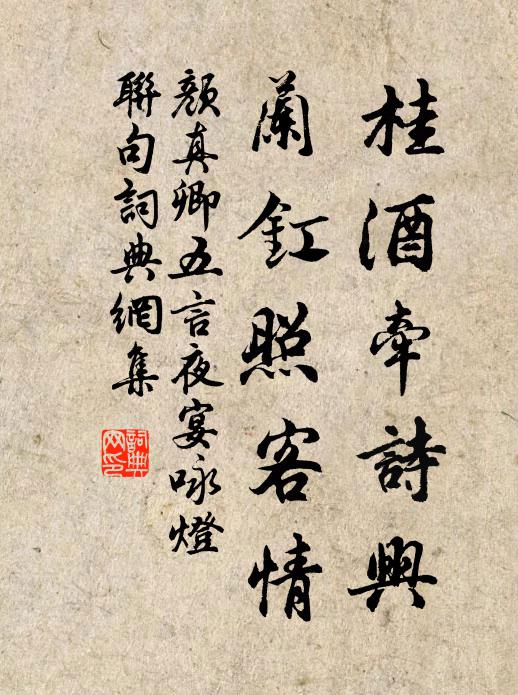 桂酒牽詩興
蘭釭照客情
顏真卿五言夜宴咏燈
聯句詞典網集
詞典網印